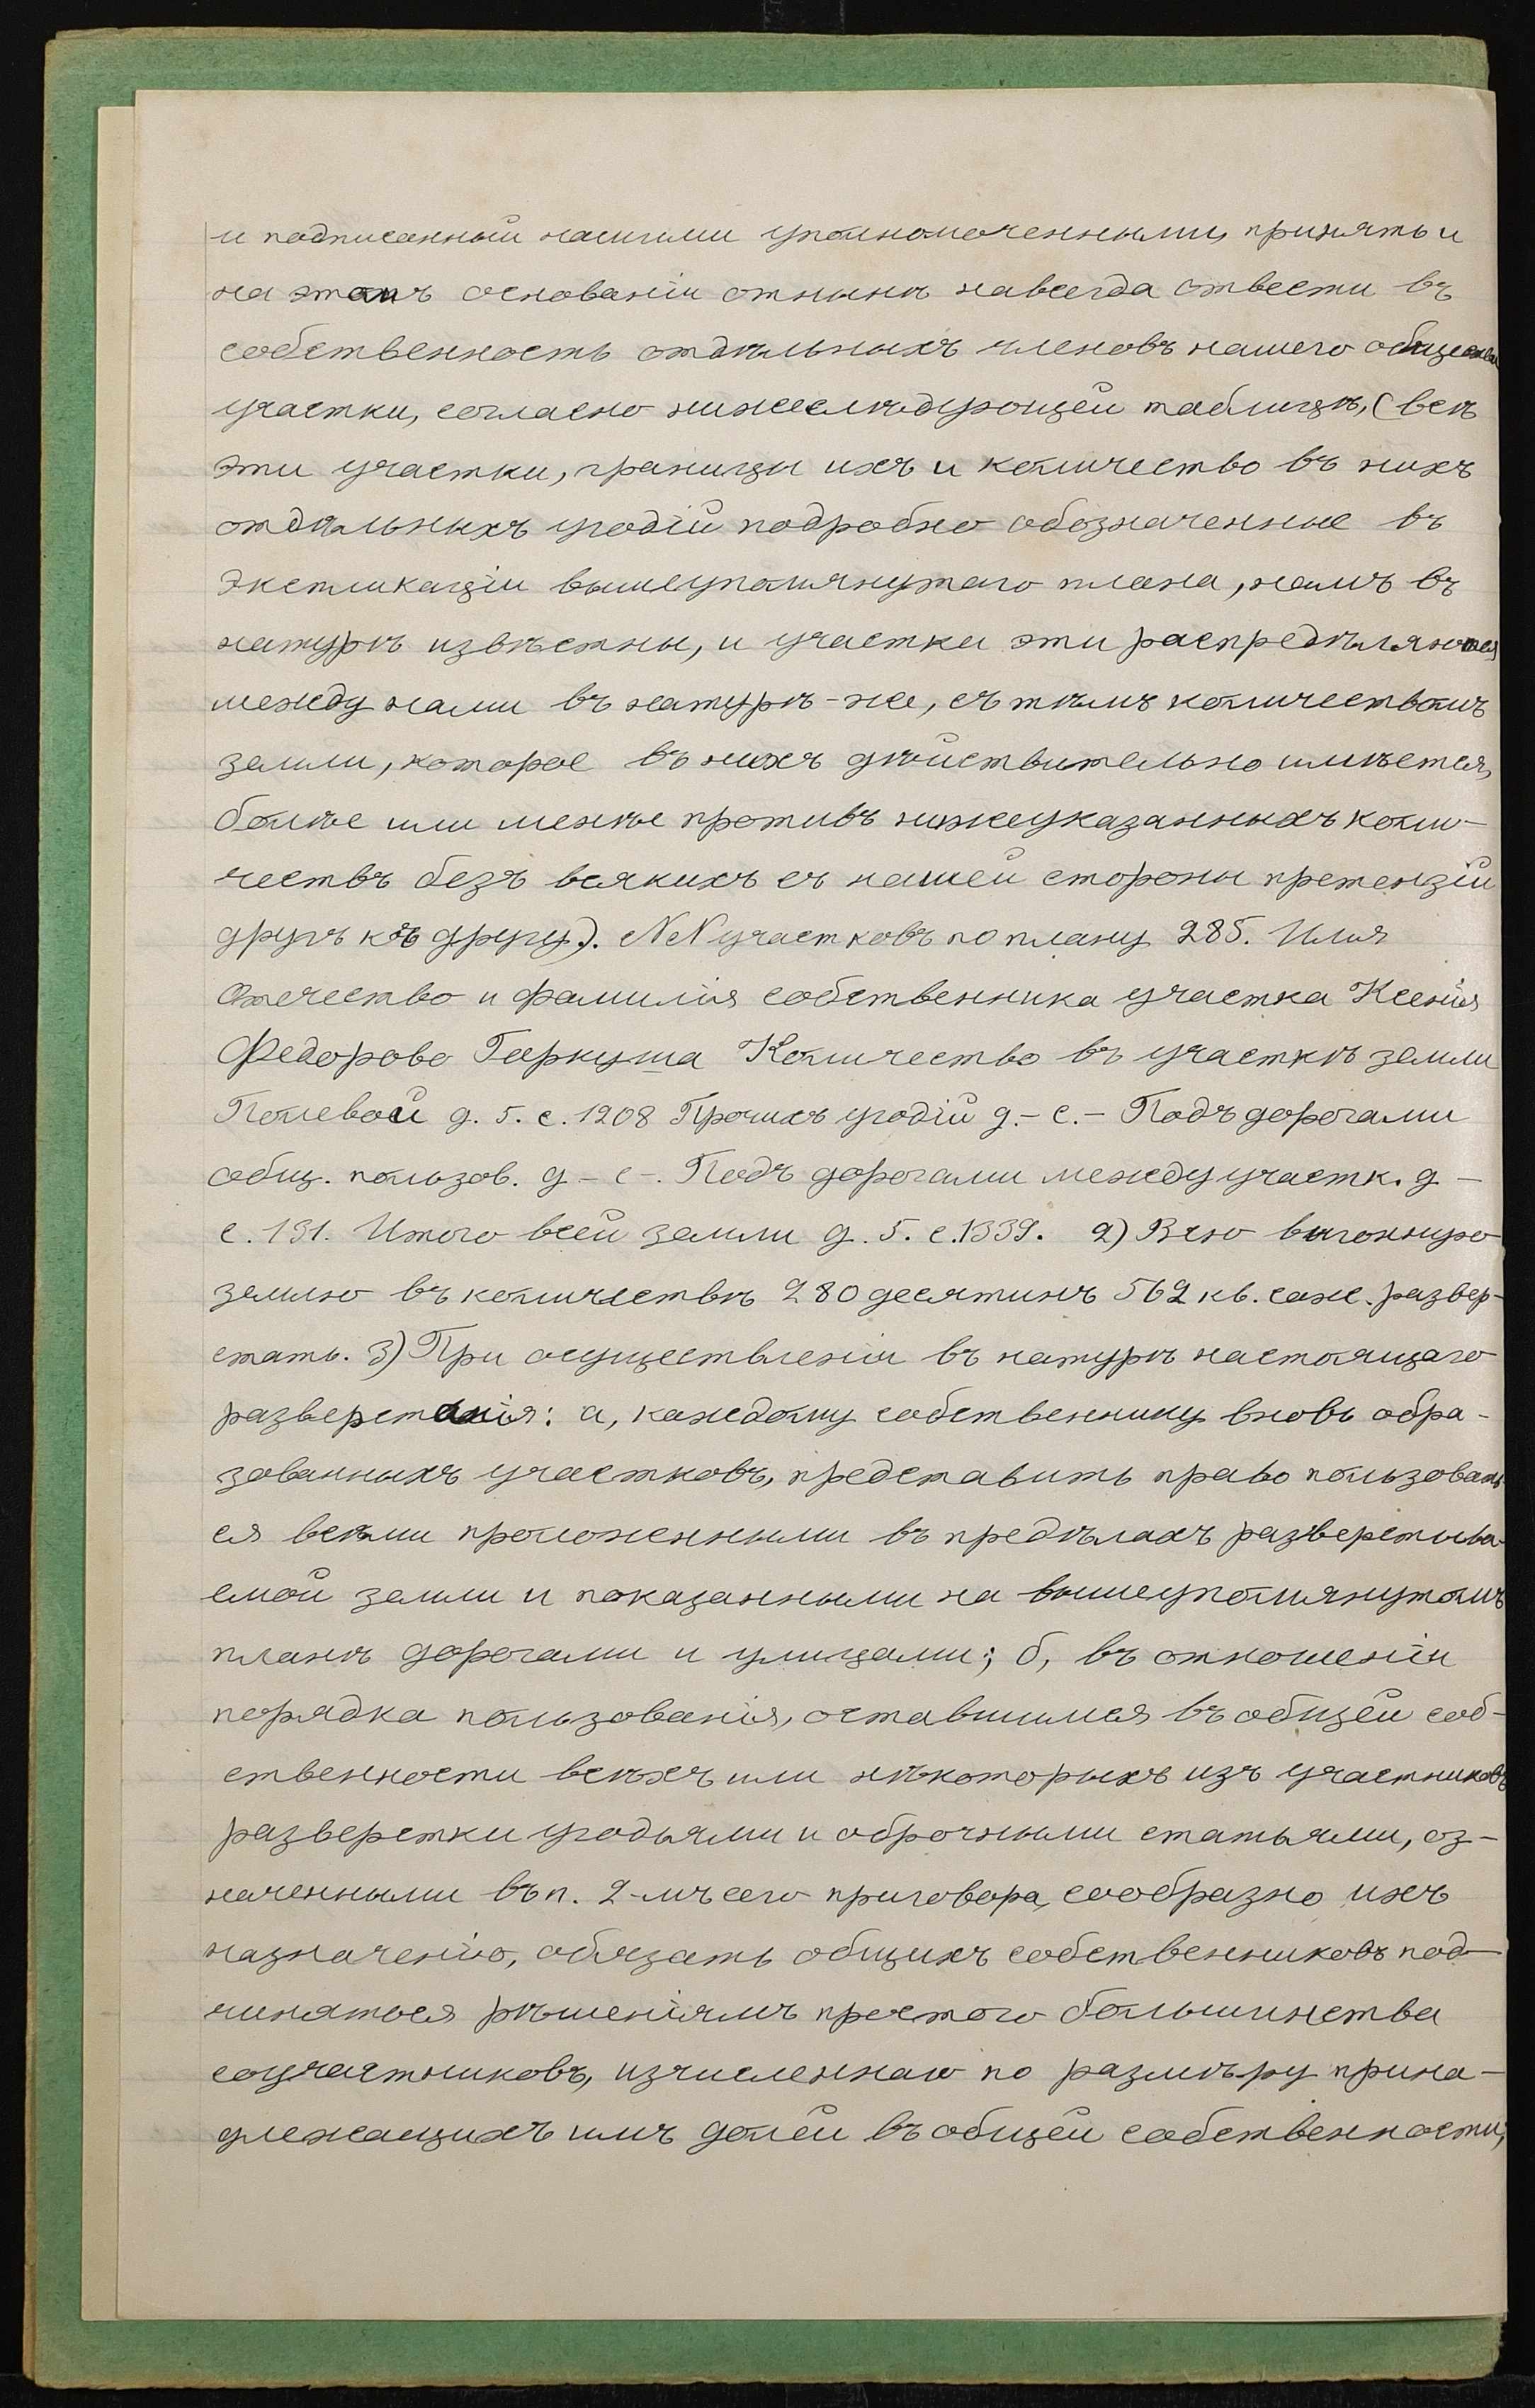 и подписанный нашими уполномоченными, принять и
на этомъ основаніи отнынѣ навсегда отвести въ
собственность отдѣльныхъ членовъ нашего общества
участки, согласно нижеслѣдующей таблицѣ, (всѣ
эти участки, границы ихъ и количество въ нихъ
отдѣльныхъ угодій подробно обозначенные въ
экспликаціи вышеупомянутаго плана, намъ въ
натурѣ извѣстны, и участки эти распредѣляются
между нами въ натурѣ-же, съ тѣмъ количествомъ
земли, которое въ нихъ дѣйствительно имѣется,
болѣе или менѣе противъ нижеуказанныхъ коли-
чествъ безъ всякихъ съ нашей стороны претензій
другъ къ другу). №№ участковъ по плану 285. Имя
отечество и фамилія собственника участка Ксенія
Федорово Гаркуша Количество въ участкѣ земли
Полевой д. 5. с. 1208 Прочихъ угодій д. - с. - Подъ дорогами
общ. пользов. д - с -. Подъ дорогами между участк. д -
с. 131. Итого всей земли д. 5. с. 1339. 2) Всю выгонную
землю въ количествѣ 280 десятинъ 562 кв. саж. развер-
стать. 3) При осуществленіи въ натурѣ настоящаго
разверстанія: а, каждому собственнику вновь обра-
зованныхъ участковъ, представить право пользовать
ся всѣми проложенными въ предѣлахъ разверстыва-
емой земли и показанными на вышеупомянутомъ
планѣ дорогами и улицами; б, въ отношеніи
порядка пользованія, оставшимся въ общей соб-
ственности всѣхъ или нѣкоторыхъ изъ участниковъ
разверстки угодьями и оброчными статьями, оз-
наченными въ п. 2-мъ сего приговора, сообразно ихъ
назначенію, обязать общихъ собственниковъ под-
чиняться рѣшеніямъ простого большинства
соучастниковъ, изчисленнаго по размѣру прина-
длежащихъ имъ долей въ общей собственности,